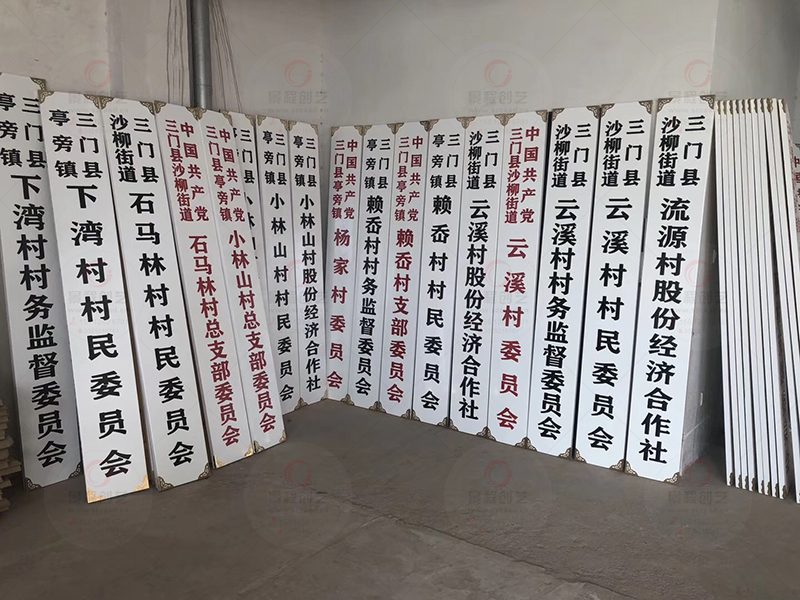 三门县
亭旁镇
下湾村村务监督委员会
三门县
亭旁镇
下湾村村民委员会
三门县
沙柳街道
石马林村村民委员会
中国共产党
三门县沙柳街道
石马林村总支部委员会
中国共产党
三门县亭旁镇
小林山村总支部委员会
三门县
小林
三门县
亭旁镇
小林山村村民委员会
三门县
亭旁镇
小林山村股份经济合作社
中国共产党
三门县亭旁镇
杨家村委员会
三门县
亭旁镇
赖岙村村务监督委员会
中国共产党
三门县亭旁镇
赖岙村支部委员会
三门县
亭旁镇
赖岙村村民委员会
三门县
沙柳街道
云溪村股份经济合作社
中国共产党
三门县沙柳街道
云溪村委员会
三门县
沙柳街道
云溪村村务监督委员会
三门县
沙柳街道
云溪村村民委员会
三门县
沙柳街道
流源村股份经济合作社